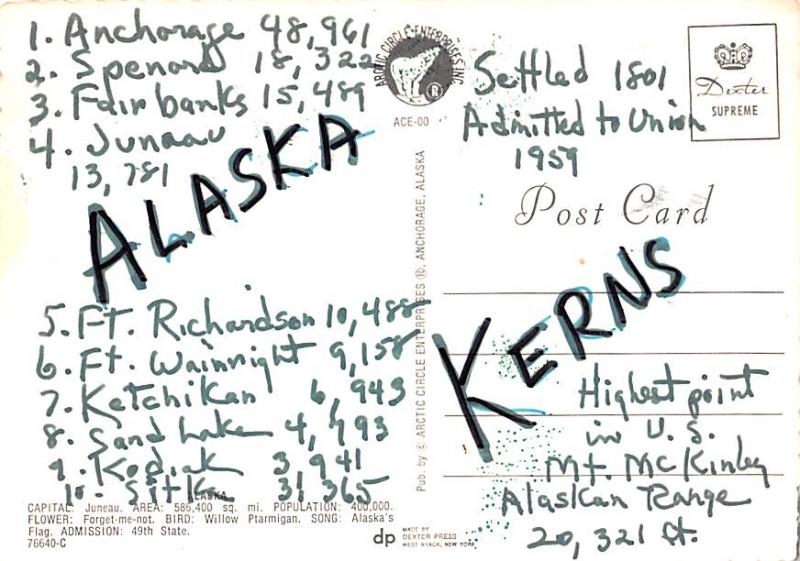 1. Anchorage 48,961
2. Spenard 18,322
3. Fairbanks 15,489
4. Juneau
13,781
ALASKA
5. Ft. Richardson 10,488
6. Ft. Wainright 9,158
7. Ketchikan 6,943
8. Sand Lake 4,493
9. Kodiak 3,941
10. Sitka 31365
ALASKA
CAPITAL: Juneau. AREA: 586,400 sq. mi. POPULATION: 400,000.
FLOWER: Forget-me-not. BIRD: Willow Ptarmigan. SONG: Alaska's
Flag. ADMISSION: 49th State.
76640-C
ARCTIC CIRCLE ENTERPRISES INC.
R
ACE-00
Pub. by © ARCTIC CIRCLE ENTERPRISES ANCHORAGE, ALASKA
dp
MADE BY
DEXTER PRESS
WEST NYACK, NEW YORK
Settled 1801
Admitted to Union
1959
Dexter
SUPREME
Post Card
KERNS
Highest point
in U.S.
Mt. McKinley
Alaskan Range
20,321 ft.